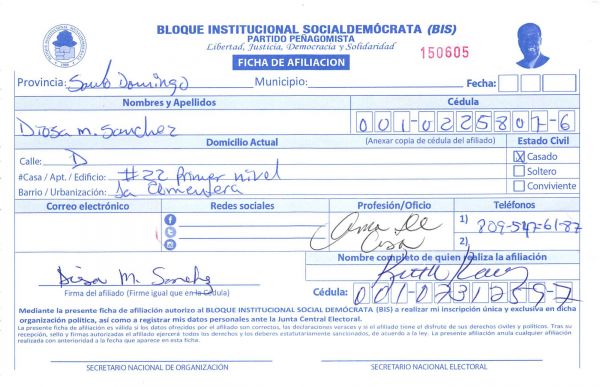 BLOQUE INSTITUCIONAL SOCIALDEMÓCRATA (BIS)
PARTIDO PEÑAGOMISTA
Libertad, Justicia, Democracia y Solidaridad
FICHA DE AFILIACION
150605
Provincia: Santo Domingo Municipio: Fecha:
Nombres y Apellidos Cédula
Diosa M. Sanchez 001-0225807-6
Domicilio Actual (Anexar copia de cédula del afiliado) Estado Civil
Calle: D X Casado
#Casa / Apt. / Edificio: #22 Primer nivel Soltero
Barrio / Urbanización: La Cementera Conviviente
Correo electrónico Redes sociales Profesión/Oficio Teléfonos
Ama De Casa 1) 809-547-61-87
2)
Nombre completo de quien realiza la afiliación
Diosa M. Sanchez Ruth
Firma del afiliado (Firme igual que en la Cédula) Cédula: 001-0731259-7
Mediante la presente ficha de afiliación autorizo al BLOQUE INSTITUCIONAL SOCIAL DEMÓCRATA (BIS) a realizar mi inscripción única y exclusiva en dicha
organización política, así como a registrar mis datos personales ante la Junta Central Electoral.
La presente ficha de afiliación es válida si los datos ofrecidos por el afiliado son correctos, las declaraciones veraces y si el titular tiene el disfrute de sus derechos civiles y políticos. Tras su
recepción, sello y firmas autorizadas el afiliado ejercerá todos los derechos y los deberes estatutariamente sancionados, de acuerdo a la ley. La presente afiliación anula cualquier afiliación
realizada con anterioridad a la fecha que aparece en esta ficha.
SECRETARIO NACIONAL DE ORGANIZACIÓN SECRETARIO NACIONAL ELECTORAL